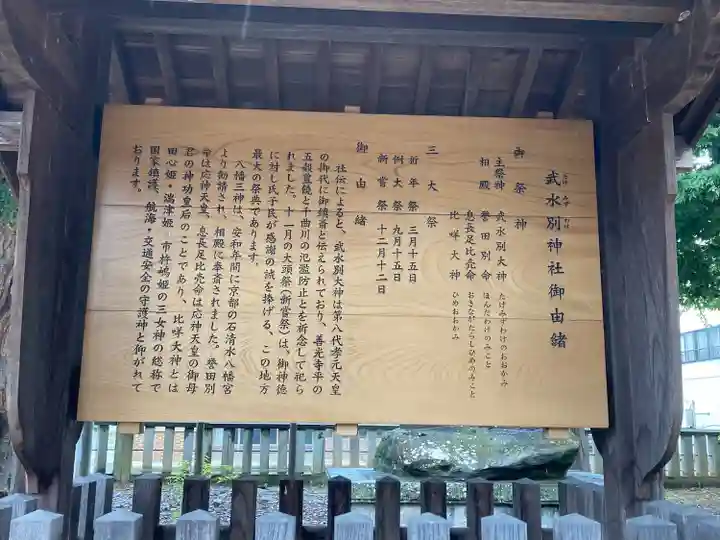 武水別神社御由緒
たけ みず わけ
御祭神
主祭神 武水別大神 たけみずわけのおおかみ
相殿 誉田別命 ほんだわけのみこと
息長足比売命 おきながたらしひめのみこと
比咩大神 ひめおおかみ
三大祭
祈年祭 三月十五日
例大祭 九月十五日
新嘗祭 十二月十二日
御由緒
社伝によると、武水別大神は第八代孝元天皇
の御代に御鎮斎と伝えられており、善光寺平の
五穀豊饒と千曲川の氾濫防止とを祈念して祀ら
れました。十一月の大頭祭(新嘗祭)は、御神徳
に対し氏子民が感謝の誠を捧げる、この地方
最大の祭典であります。
八幡三神は、安和年間に京都の石清水八幡宮
より勧請され、相殿に奉斎されました。誉田別
命は応神天皇、息長足比売命は応神天皇の御母
君の神功皇后のことであり、比咩大神とは
田心姫・湍津姫・市杵嶋姫の三女神の総称で
国家鎮護、航海・交通安全の守護神と仰がれて
おります。